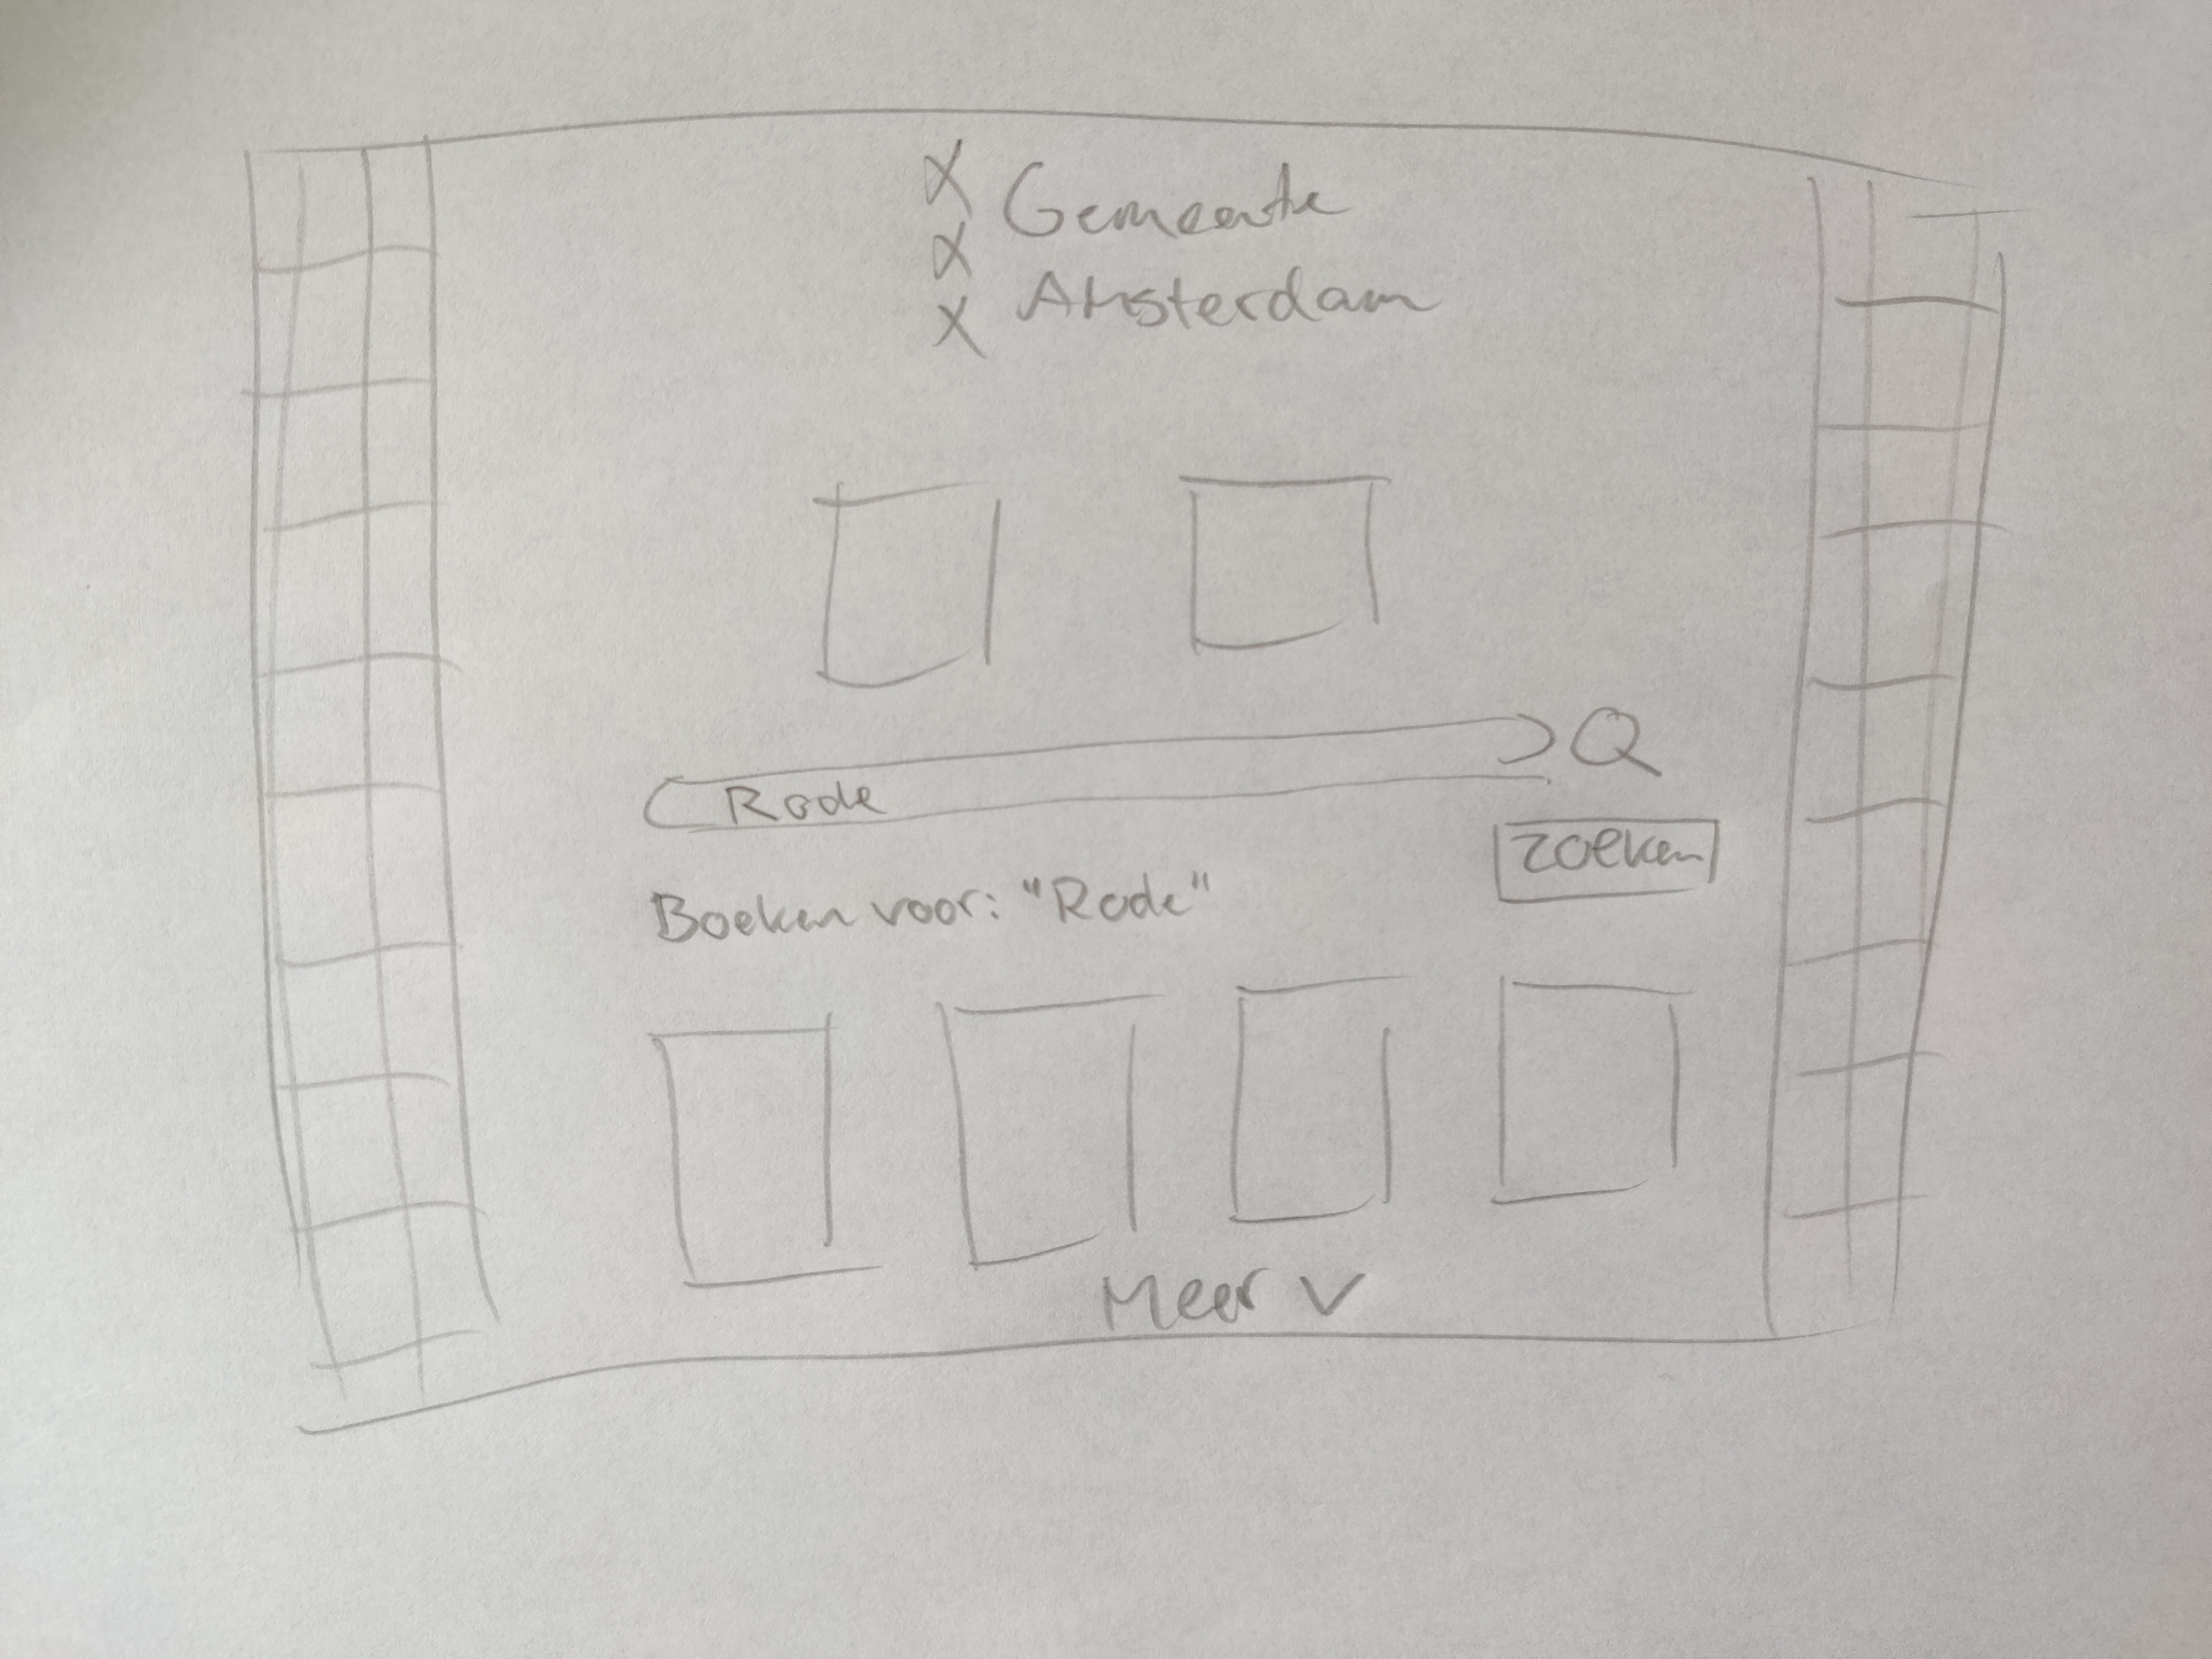 X Gemeente
X
X Amsterdam
Rode
zoeken
Boeken voor: "Rode"
Meer v